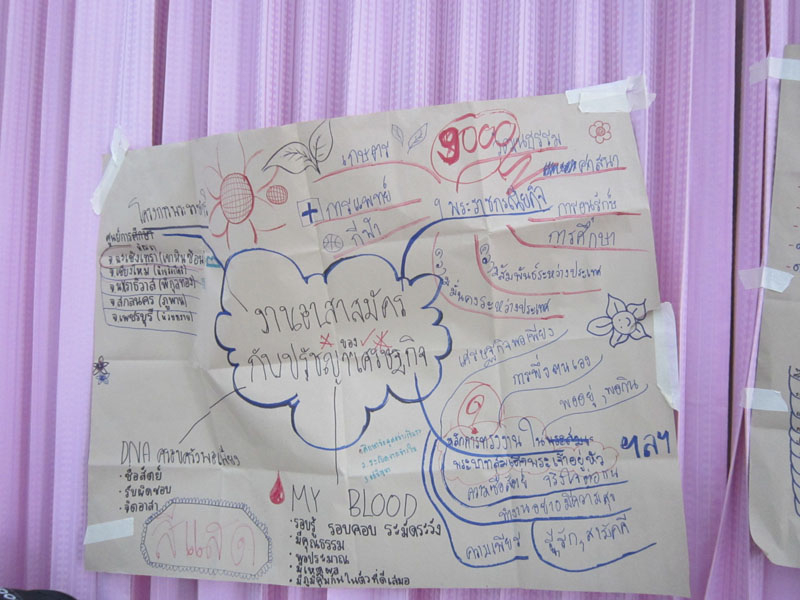 เกษตร
9000
วัฒนธรรม
ศาสนา
การแพทย์
กีฬา
พระราชกรณียกิจ
การอนุรักษ์
การศึกษา
สัมพันธ์ระหว่างประเทศ
มั่นคงระหว่างประเทศ
ศูนย์การศึกษา
จ.ฉะเชิงเทรา (เขาหินซ้อน)
จ.เชียงใหม่
จ.นราธิวาส (พิกุลทอง)
จ.สกลนคร (ภูพาน)
จ.เพชรบุรี
งานอาสาสมัคร
ของ
กับปรัชญาเศรษฐกิจ
เศรษฐกิจพอเพียง
การพึ่งตนเอง
พออยู่, พอกิน
หลักการทรงงาน ใน
พระบาทสมเด็จพระเจ้าอยู่หัว
ฯลฯ
ความซื่อสัตย์ จริงใจต่อกัน
ทำงานอย่างมีความสุข
ความเพียร
รู้, รัก, สามัคคี
DNA
ซื่อสัตย์
รับผิดชอบ
จิตอาสา
สีแสด
MY BLOOD
รอบรู้ รอบคอบ ระมัดระวัง
มีคุณธรรม
พอประมาณ
มีเหตุผล
มีภูมิคุ้มกันในตัวที่ดีเสมอ